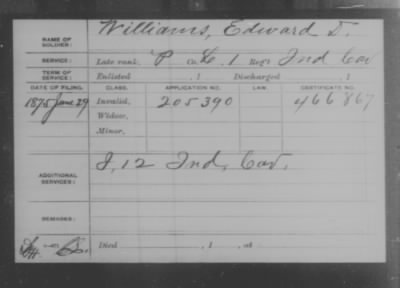 Williams, Edward D.
NAME OF SOLDIER:
SERVICE: Late rank, P Co. L. 1 Reg't Ind Cav
TERM OF SERVICE: Enlisted , 1 Discharged , 1
DATE OF FILING. CLASS. APPLICATION NO. LAW. CERTIFICATE NO.
1875 June 29 Invalid, 205390 466867
Widow,
Minor,
ADDITIONAL SERVICES: I, 12 Ind, Cav.
REMARKS:
Died , 1 , at